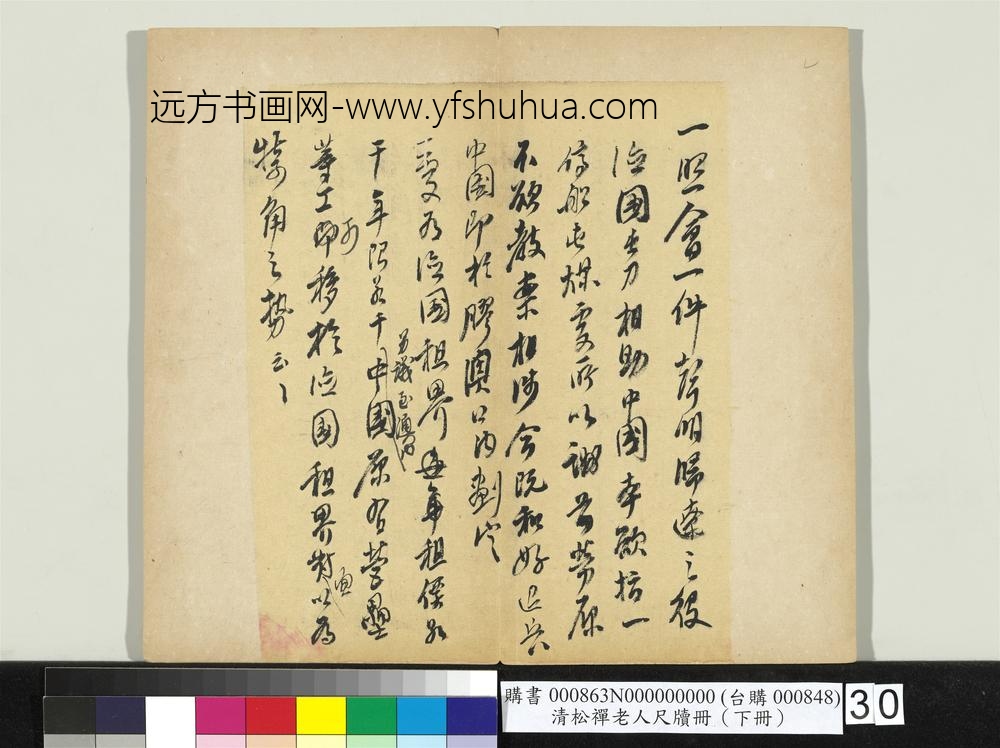 远方书画网-www.yfshuhua.com
一照會一件聲明歸遼之役
德國出力相助中國本欲指一
停船屯煤處所以謝前勞原
不欲教案相涉今既和好退兵
中國即於膠澳口內劃定
一段為德國租界每年租價若
干年限若干中國原有營壘
另議
等工即可移於德國租界對面以為
犄角之勢云云
購書 000863N000000000 (台購 000848)
清松禪老人尺牘冊（下冊）
30